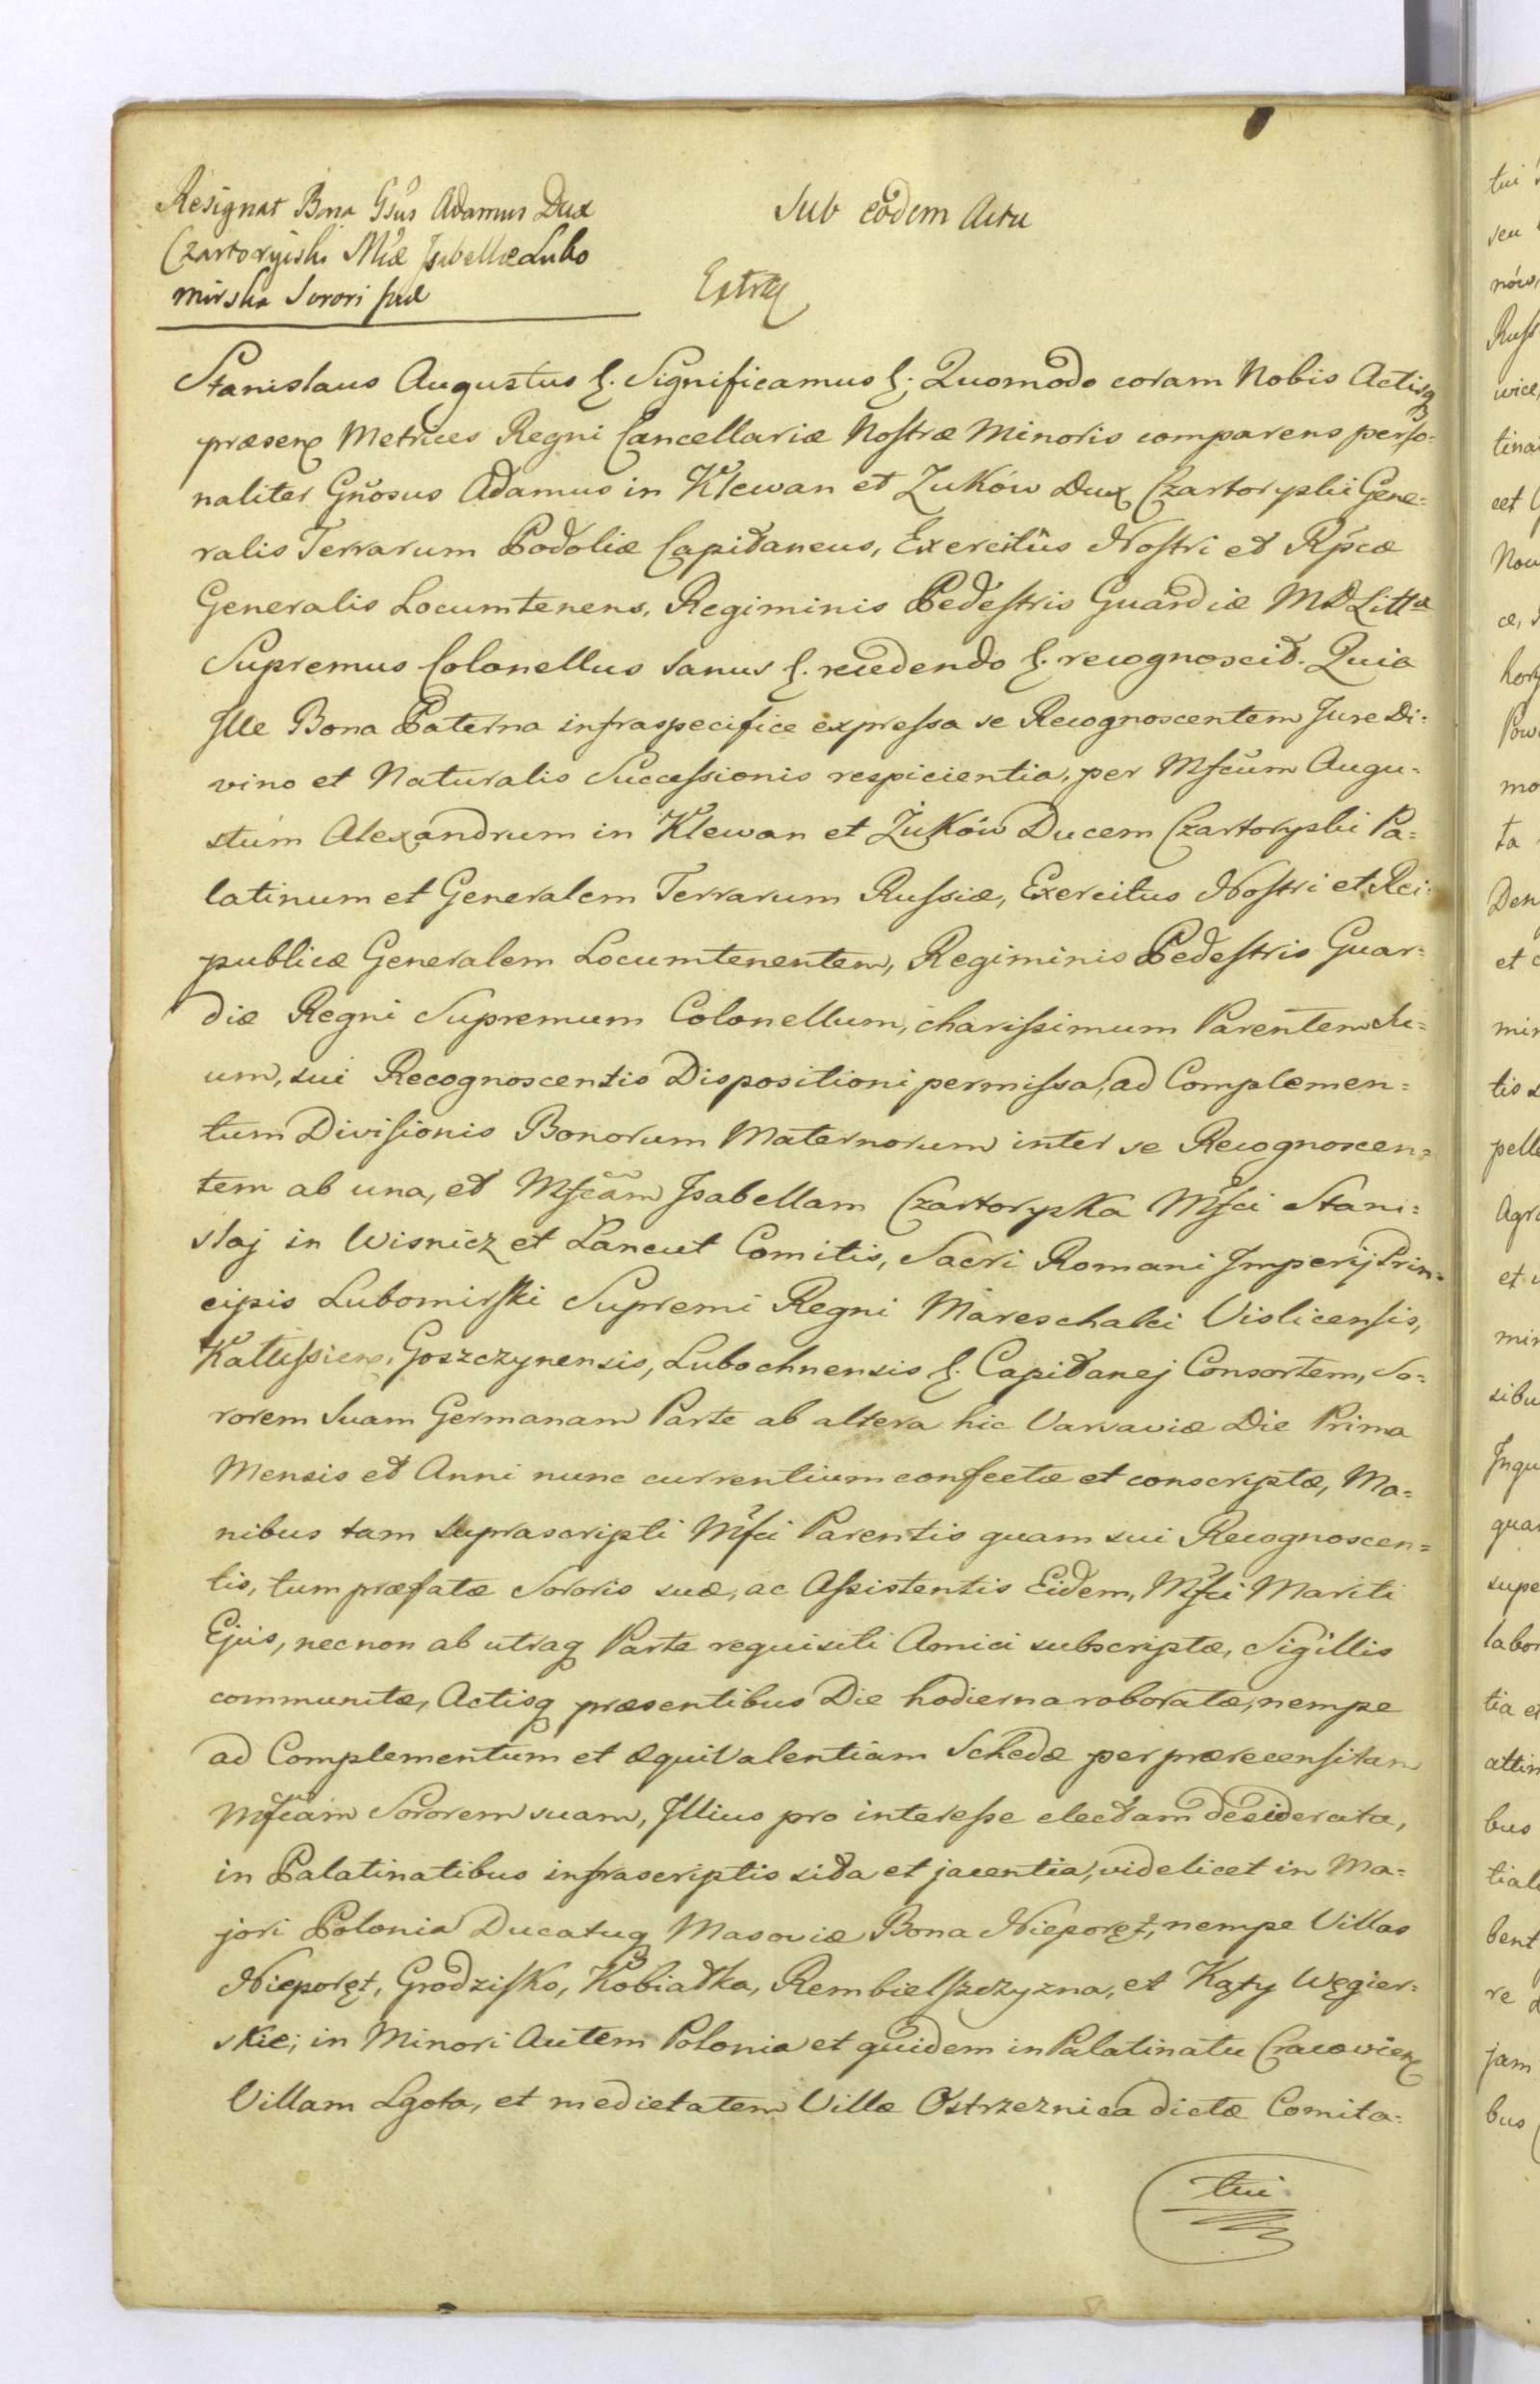 Resignat Bona Gsus Adamus Dux
Czartoryiski Mae Isabellæ Lubo
mirska Sorori suæ
Sub eodem Actu
Extra
Stanislaus Augustus &. Significamus &; Quomodo coram Nobis Actisq
præsens Metrices Regni Cancellariæ Nostræ Minoris comparens perso=
naliter Gnosus Adamus in Klewan et Zuków Dux Czartoryski Gene=
ralis Terrarum Podoliæ Capitaneus, Exercitûs Nostri et Rpcæ
Generalis Locumtenens, Regiminis Pedestris Guardiæ M D Littæ
Supremus Colonellus sanus &. recedendo &. recognoscit. Quia
Ille Bona Paterna infraspecifice expressa se Recognoscentem Jure Di=
vino et Naturalis Successionis respicientia, per Mfcum Augu=
stum Alexandrum in Klewan et Żuków Ducem Czartoryski Pa=
latinum et Generalem Terrarum Russiæ, Exercitus Nostri et Rei=
publicæ Generalem Locumtenentem, Regiminis Pedestris Guar=
diæ Regni Supremum Colonellum, charissimum Parentem Su=
um, sui Recognoscentis Dispositioni permissa, ad Complemen=
tum Divisionis Bonorum Maternorum inter se Recognoscen=
tem ab una, et Mfcam Isabellam Czartoryska Mfci Stani=
slaj in Wisnicz et Lancut Comitis, Sacri Romani Imperij Prin=
cipis Lubomirski Supremi Regni Mareschalci Vislicensis,
Kallissiens, Goszczynensis, Lubochnensis &. Capitanej Consortem, So=
rorem Suam Germanam Parte ab altera hic Varsaviæ Die Prima
Mensis et Anni nunc currentium confectæ et conscriptæ, Ma=
nibus tam suprascripti Mfci Parentis quam sui Recognoscen=
tis, tum præfatæ Sororis suæ, ac Assistentis Eidem, Mfci Mariti
Ejus, necnon ab utraq Parte requisiti Amici subscriptæ, Sigillis
communitæ, Actisq præsentibus Die hodierna roboratæ, nempe
ad Complementum et æquivalentiam Schedæ per præcensitam
Mfcam Sororem suam, Illius pro interesse electam desiderata,
in Palatinatibus infrascriptis sita et jacentia, videlicet in Ma=
jori Polonia Ducatuq Masoviæ Bona Nieporęt, nempe Villas
Nieporęt, Grodzisko, Kobiałka, Rembielszczyzna, et Kąty Węgier=
skie; in Minori Autem Polonia et quidem in Palatinatu Cracoviens
Villam Lgota, et medietatem Villæ Ostrzeznica dictæ Comita=
tui